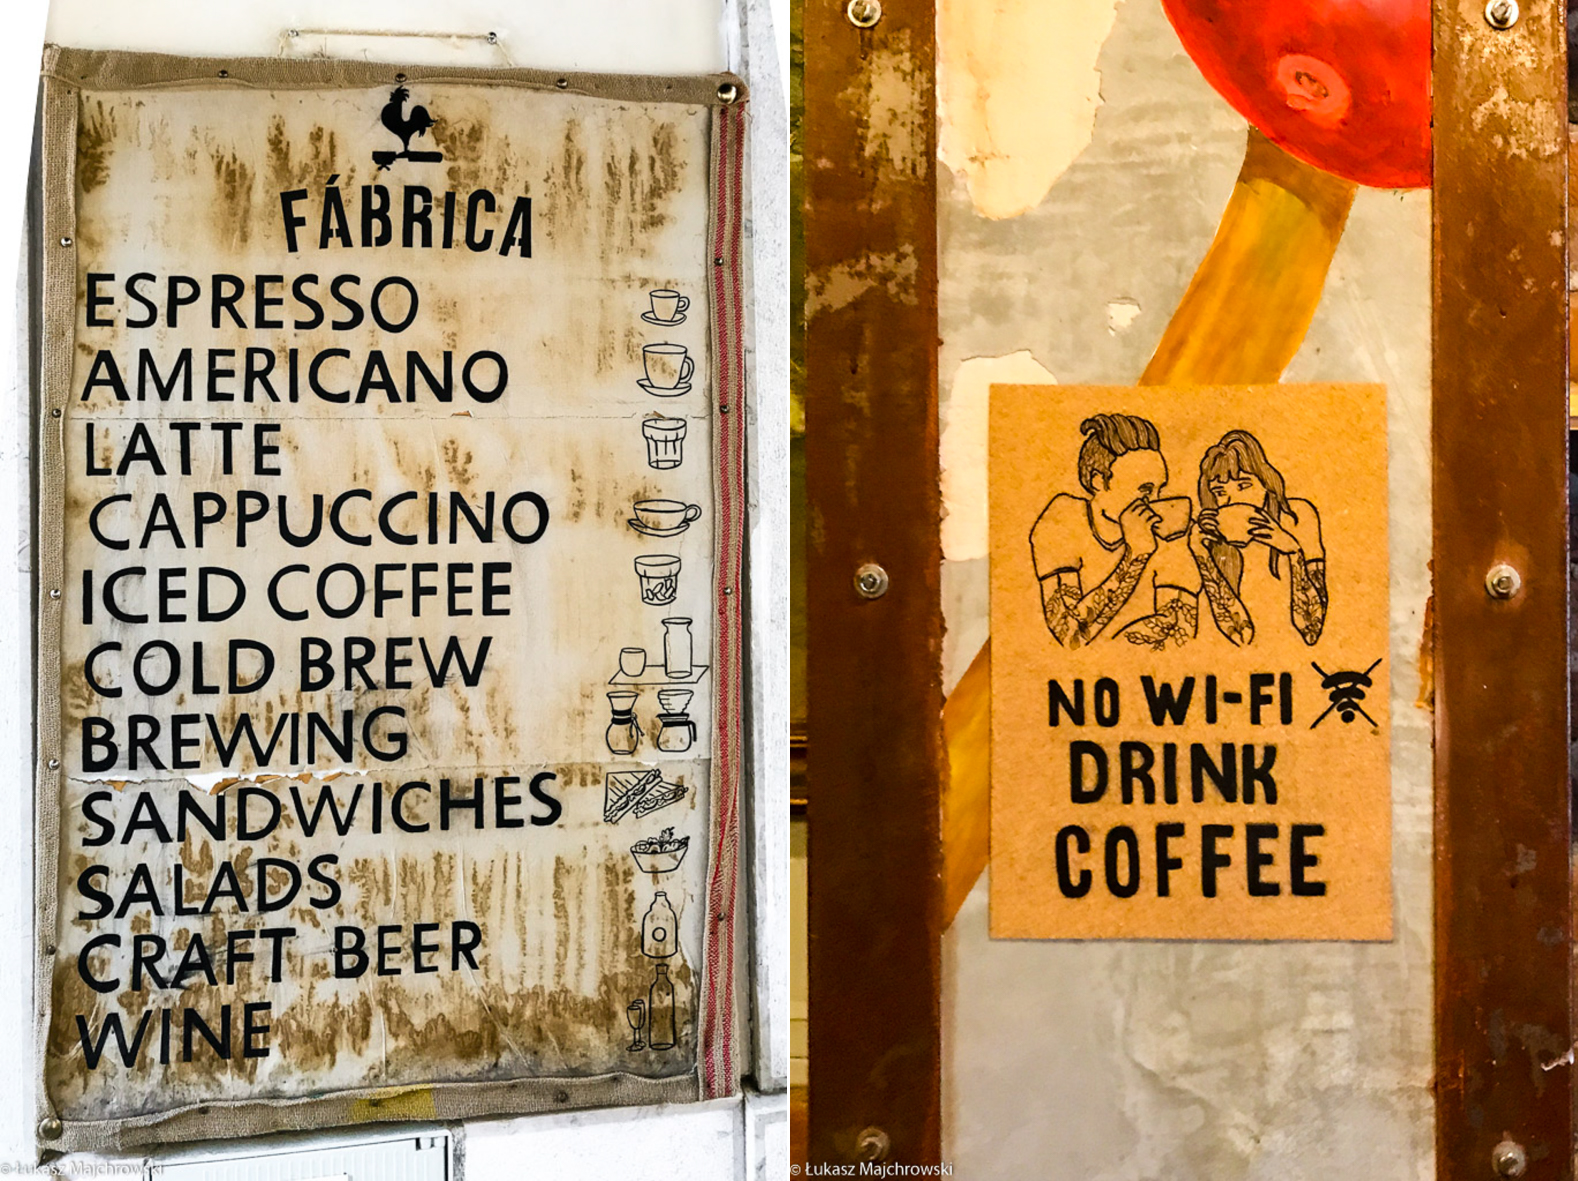 FÁBRICA
ESPRESSO
AMERICANO
LATTE
CAPPUCCINO
ICED COFFEE
COLD BREW
BREWING
SANDWICHES
SALADS
CRAFT BEER
WINE
© Łukasz Majchrowski
NO WI-FI
DRINK
COFFEE
© Łukasz Majchrowski